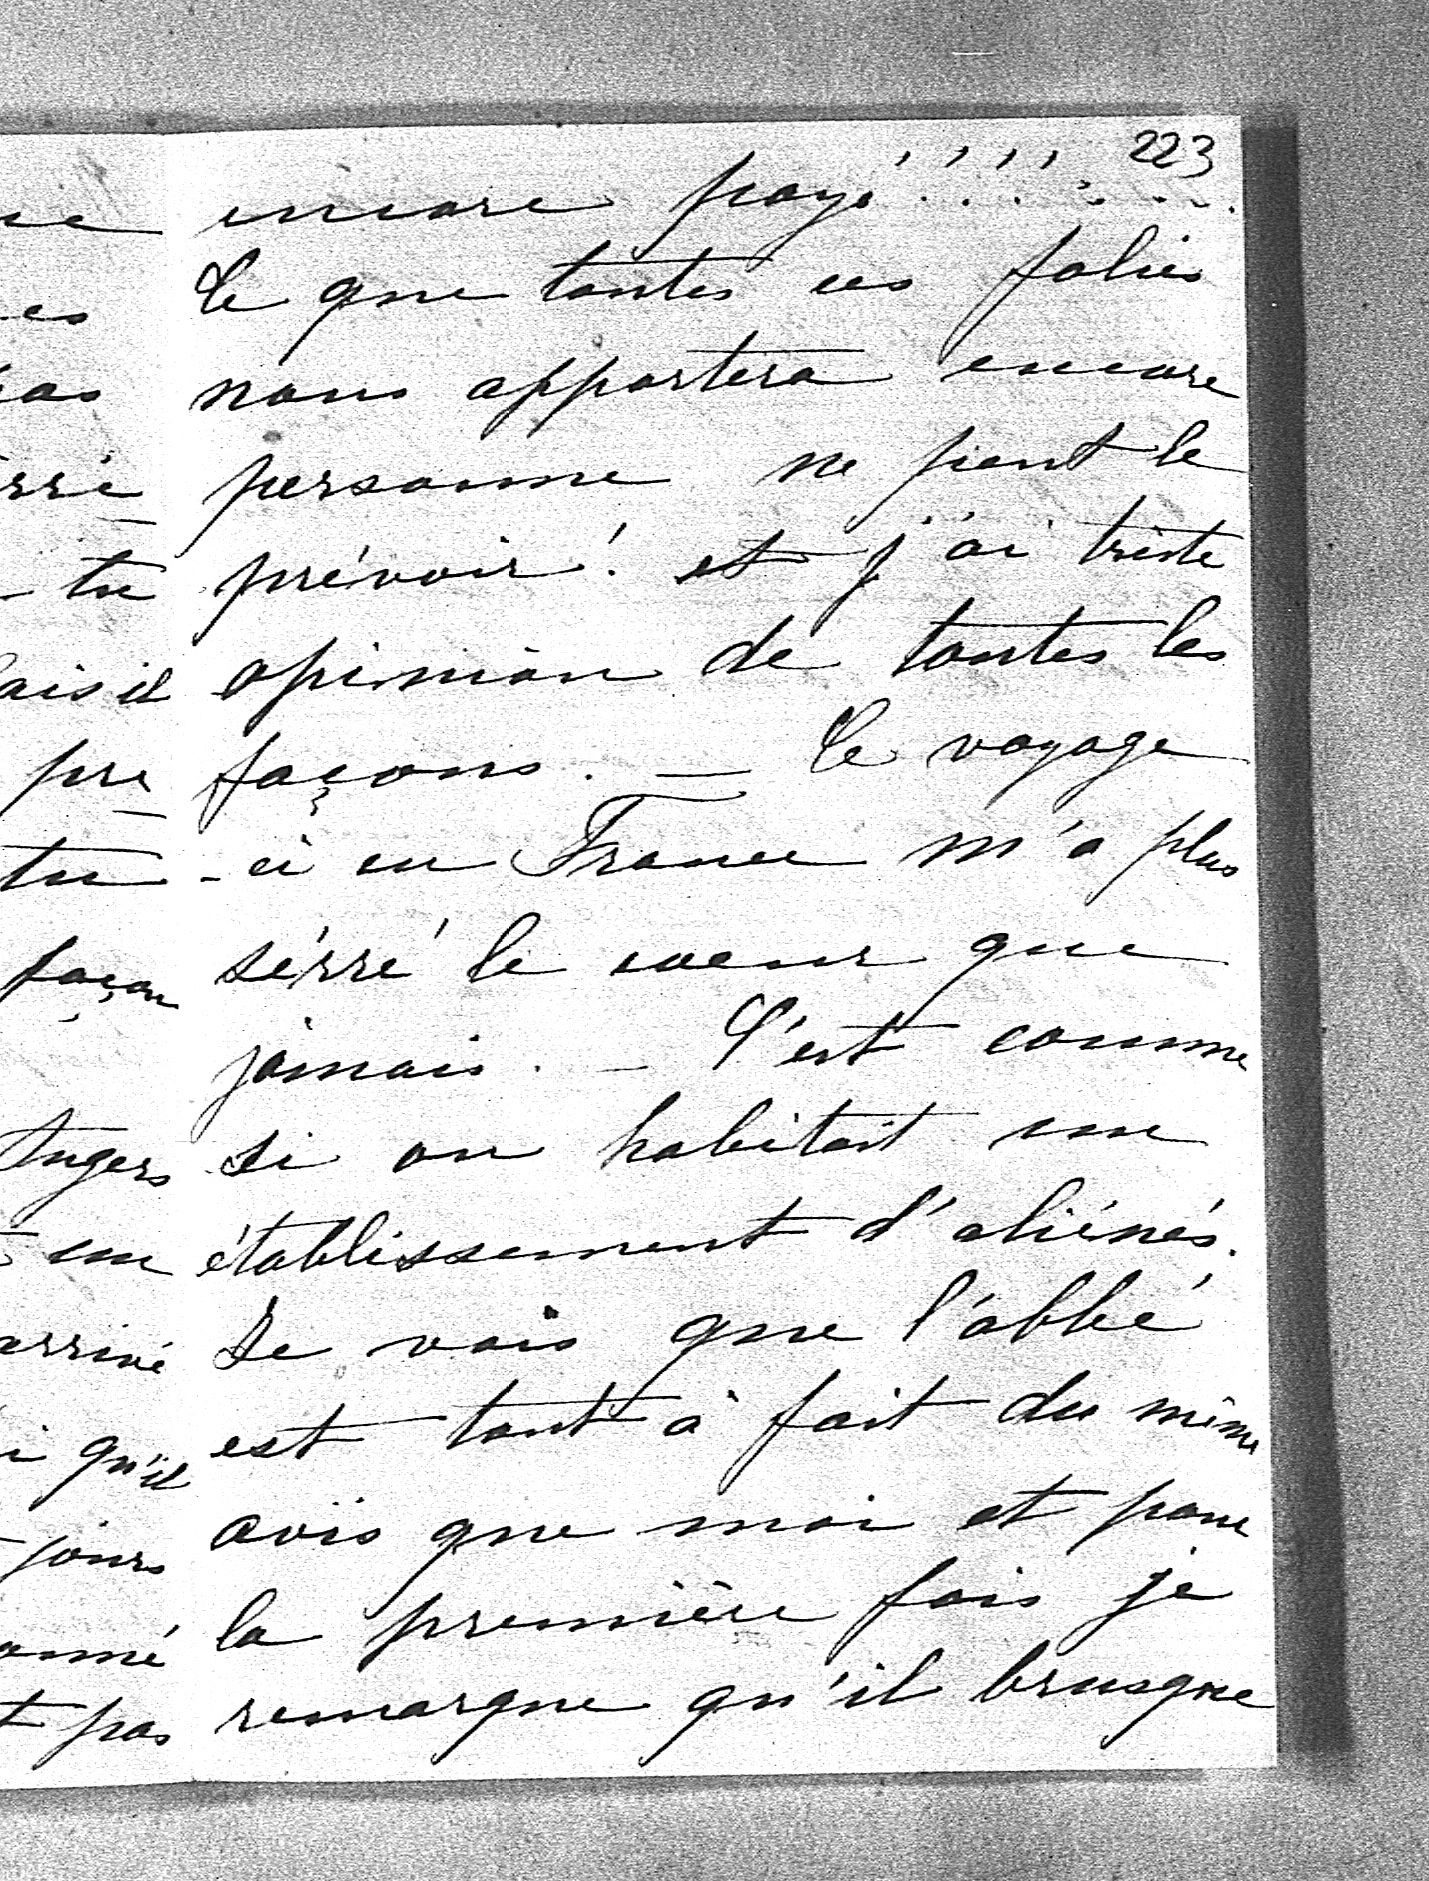 223
encore payé!!!!....
Ce que toutes ces folies
nous apportera encore
personne ne peut le
prévoir! et j'ai triste
opinion de toutes les
façons. — Ce voyage
-ci en France m'a plus
sérré le coeur que
jamais. — C'est comme
si on habitait un
établissement d'aliénés.
Je vois que l'abbé
est tout à fait du même
avis que moi et pour
la première fois je
remarque qu'il brusque
es
tu
ais il
pre
tu
façon
Angers
un
arrivé
i qu'il
jours
onné
t pas